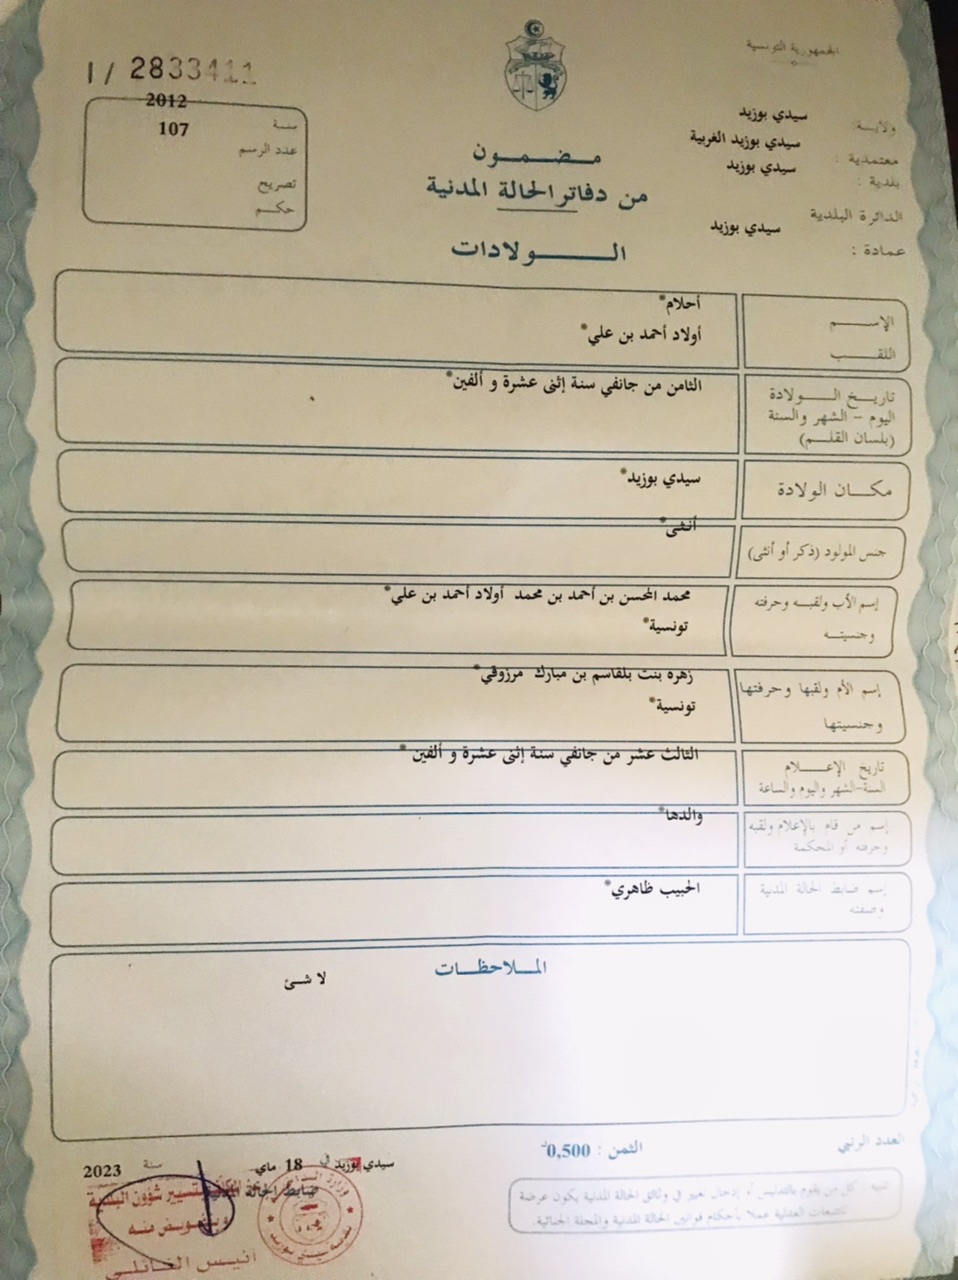 الجمهورية التونسية
ولاية : سيدي بوزيد
معتمدية : سيدي بوزيد الغربية
بلدية : سيدي بوزيد
الدائرة البلدية
عمادة : سيدي بوزيد
I / 2833411
سنة 2012
عدد الرسم 107
تصريح
حكم
مضمون
من دفاتر الحالة المدنية
الولادات
الإسم أحلام*
اللقب أولاد أحمد بن علي*
تاريخ الولادة
اليوم - الشهر والسنة
(بلسان القلم)
الثامن من جانفي سنة إثنى عشرة و ألفين*
مكان الولادة سيدي بوزيد*
جنس المولود (ذكر أو أنثى) أنثى*
إسم الأب ولقبه وحرفته
وجنسيته
محمد المحسن بن أحمد بن محمد أولاد أحمد بن علي*
تونسية*
إسم الأم ولقبها وحرفتها
وجنسيتها
زهره بنت بلقاسم بن مبارك مرزوقي*
تونسية*
تاريخ الإعلام
السنة-الشهر واليوم والساعة
الثالث عشر من جانفي سنة إثنى عشرة و ألفين *
إسم من قام بالإعلام ولقبه
وحرفته أو المحكمة
والدها*
إسم ضابط الحالة المدنية
وصفته
الحبيب ظاهري*
الملاحظات
لا شئ
العدد الرتبي
الثمن : 0,500د
سيدي بوزيد في 18 ماي سنة 2023
ضابط الحالة المدنية
تنبيه : كل من يقوم بالتدليس أو إدخال تغيير في وثائق الحالة المدنية يكون عرضة
للتتبعات العدلية عملا بأحكام قوانين الحالة المدنية والمجلة الجنائية.
بتسيير شؤون البلدية
وبتفويض منه
أنيس